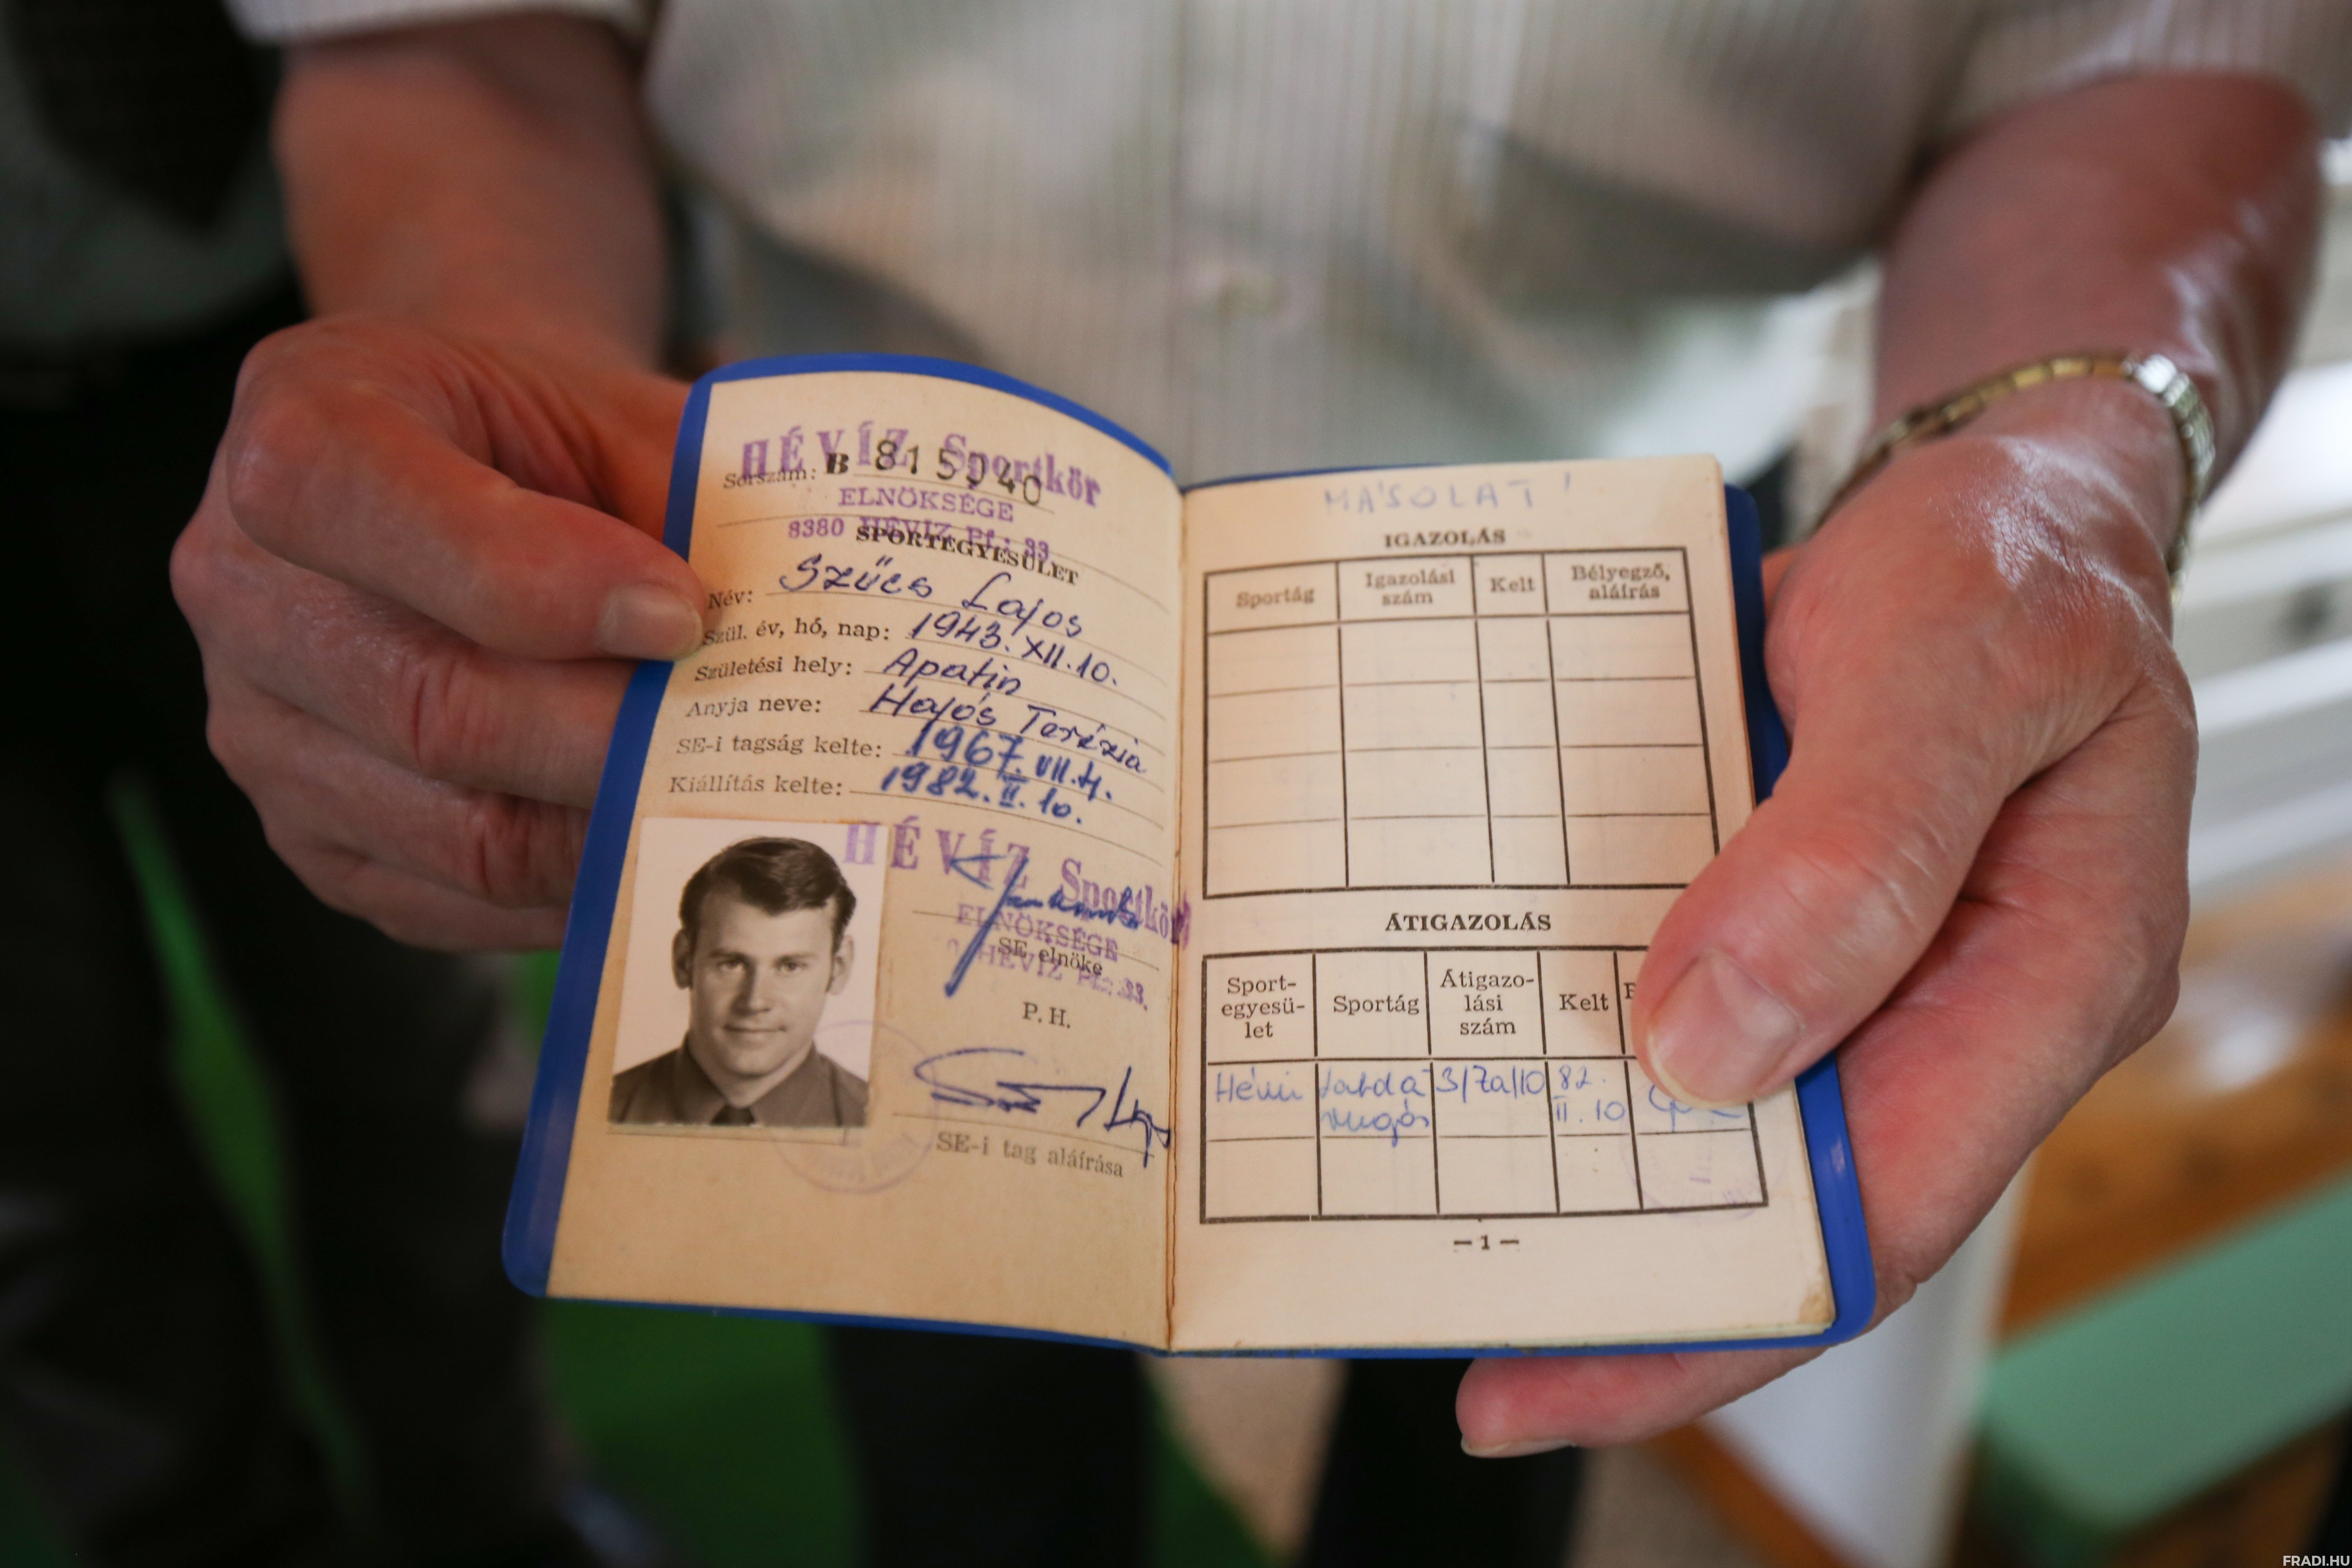 HÉVÍZ Sportkör
Sorszám: B 815040
ELNÖKSÉGE
8380 HÉVÍZ Pf.: 33
SPORTEGYESÜLET
Név: Szűcs Lajos
Szül. év, hó, nap: 1943. XII. 10.
Születési hely: Apatin
Anyja neve: Hajós Terézia
SE-i tagság kelte: 1967. VII. 4.
Kiállítás kelte: 1982. II. 10.
HÉVÍZ Sportkör
ELNÖKSÉGE
SE elnöke
HÉVÍZ Pf.: 33.
P. H.
SE-i tag aláírása
MÁSOLAT!
IGAZOLÁS
Sportág Igazolási szám Kelt Bélyegző, aláírás
ÁTIGAZOLÁS
Sport-egyesü-let Sportág Átigazo-lási szám Kelt
Hévíz 3/Za/10 82. II. 10
— 1 —
FRADI.HU